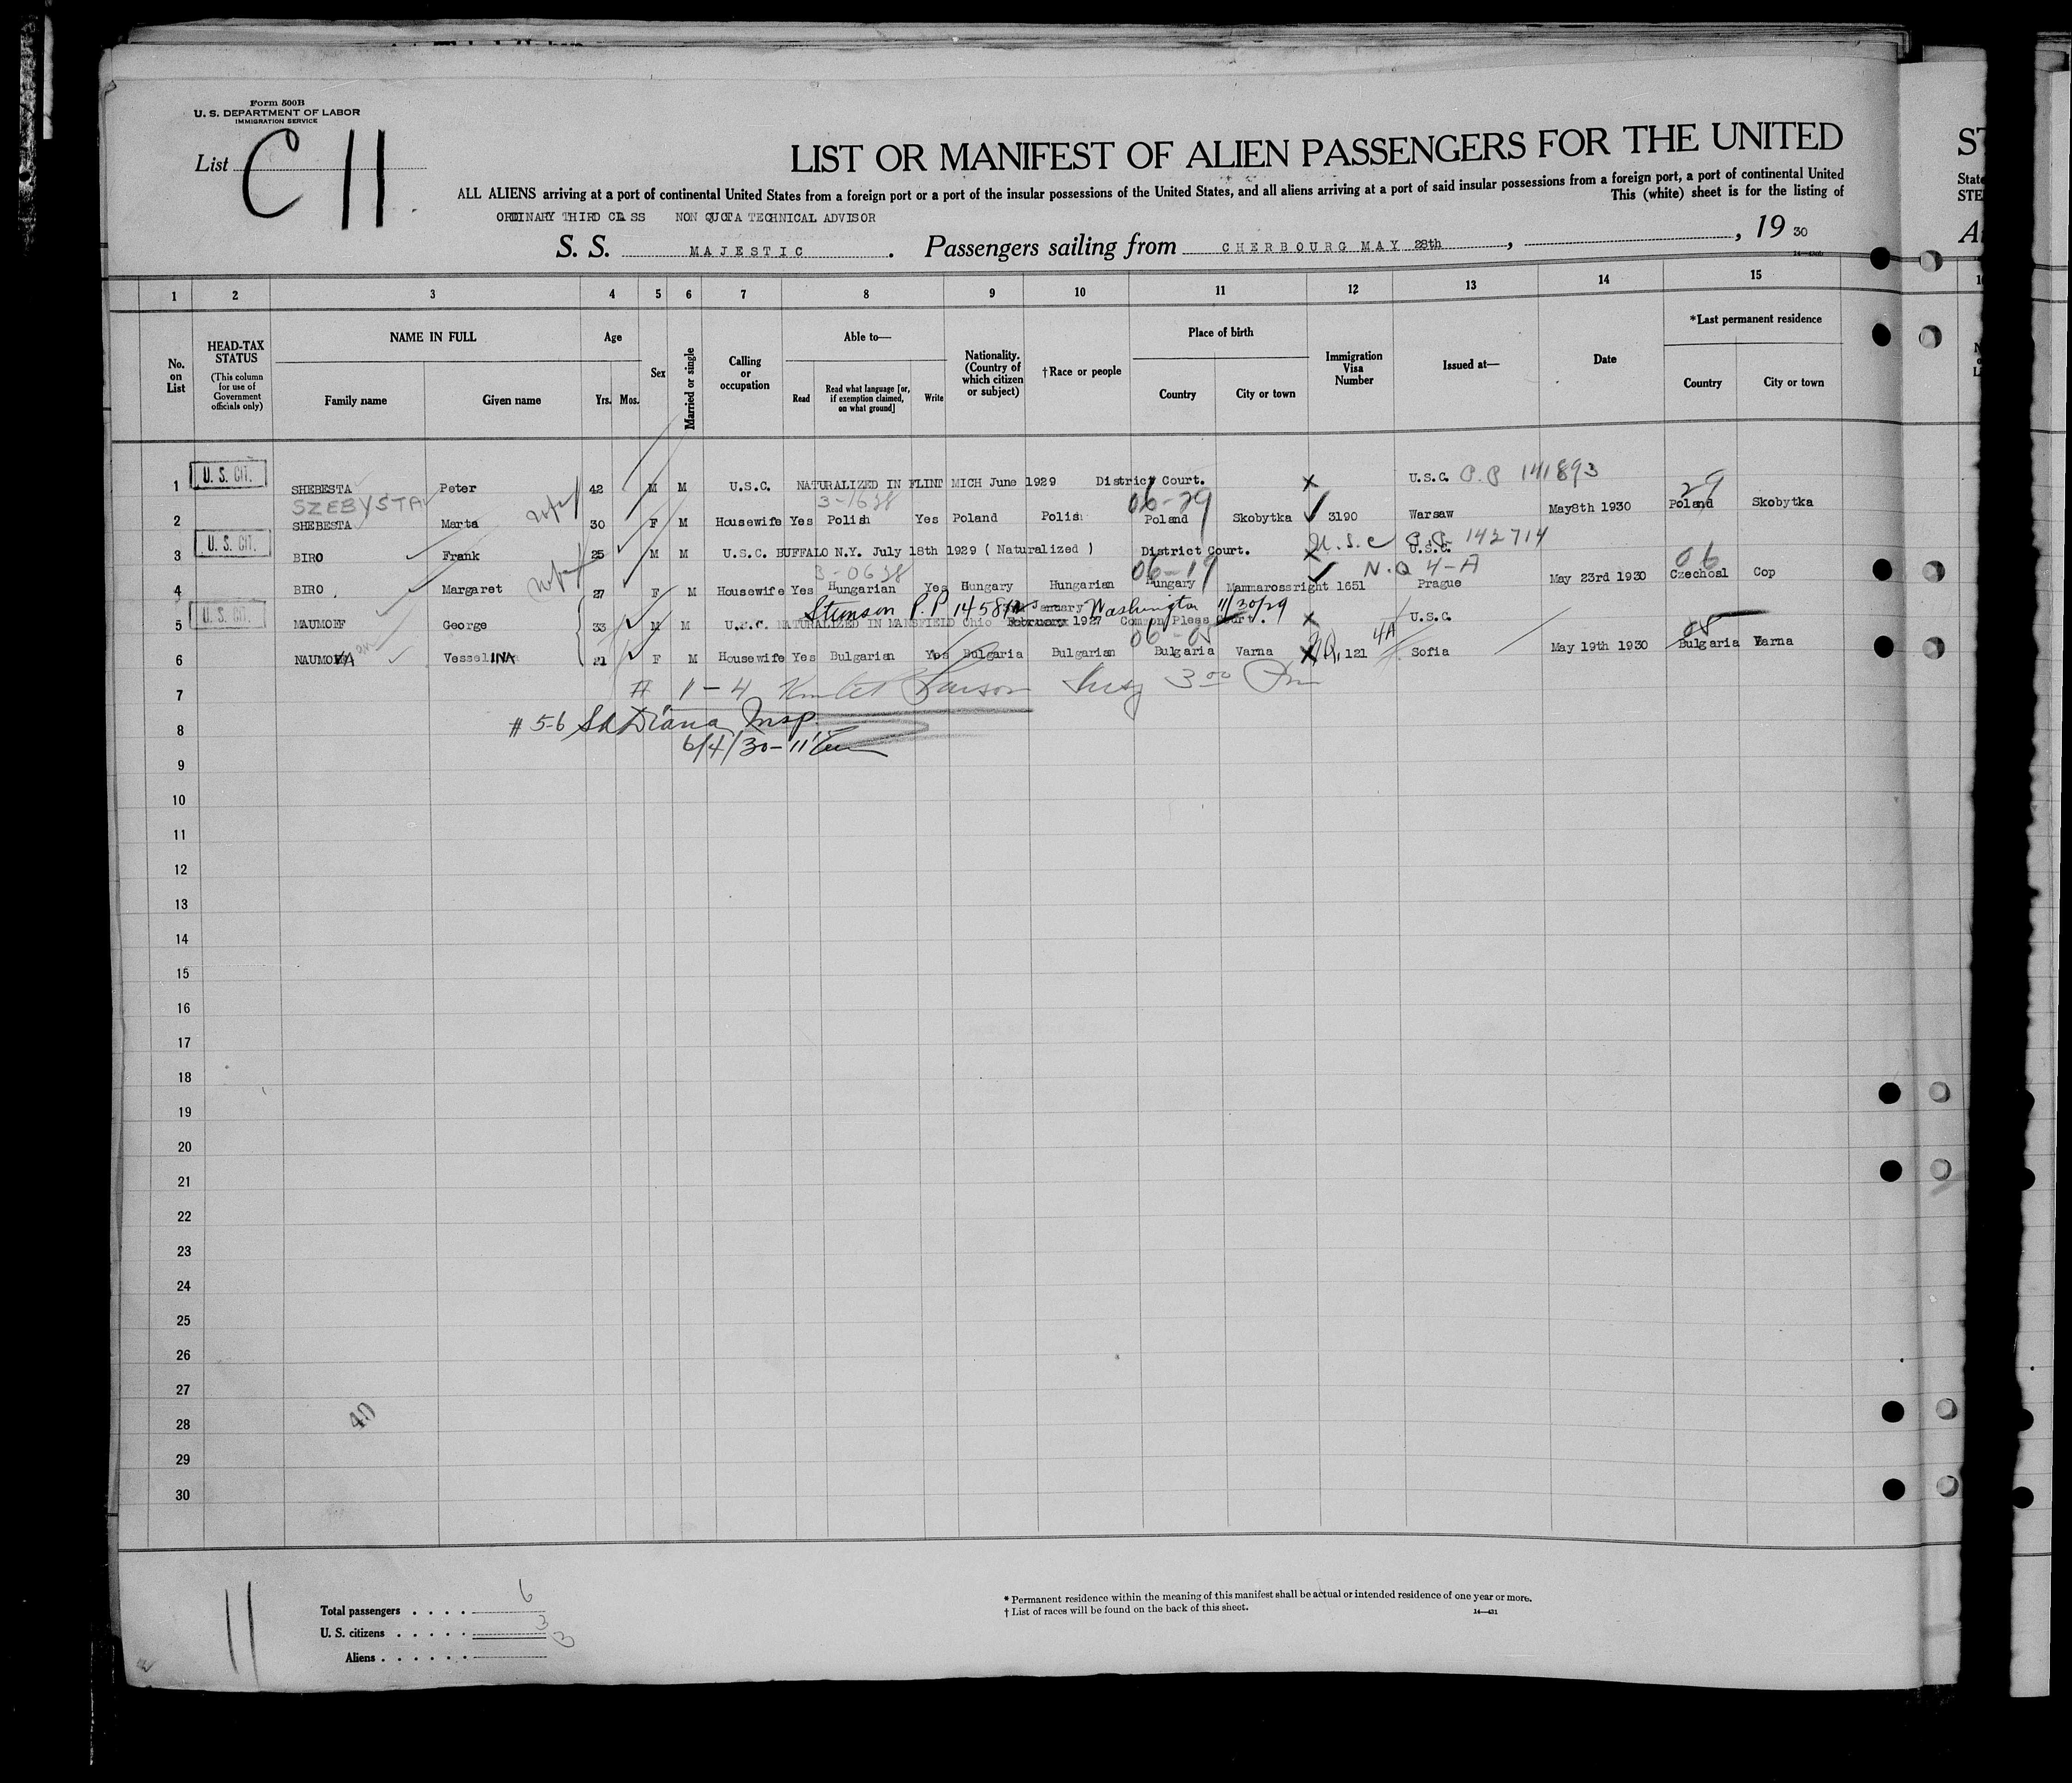 Form 500B
U. S. DEPARTMENT OF LABOR
IMMIGRATION SERVICE
List C 11
LIST OR MANIFEST OF ALIEN PASSENGERS FOR THE UNITED
ALL ALIENS arriving at a port of continental United States from a foreign port or a port of the insular possessions of the United States, and all aliens arriving at a port of said insular possessions from a foreign port, a port of continental United
This (white) sheet is for the listing of
ORDINARY THIRD CLASS NON QUOTA TECHNICAL ADVISOR
S. S. MAJESTIC. Passengers sailing from CHERBOURG MAY 28th, , 19 30
1 2 3 4 5 6 7 8 9 10 11 12 13 14 15
No. on List
HEAD-TAX STATUS (This column for use of Government officials only)
NAME IN FULL Family name Given name
Age Yrs. Mos.
Sex
Married or single
Calling or occupation
Able to— Read Read what language [or, if exemption claimed, on what ground] Write
Nationality. (Country of which citizen or subject)
†Race or people
Place of birth Country City or town
Immigration Visa Number
Issued at—
Date
*Last permanent residence Country City or town
1 U. S. CIT. SHEBESTA Peter 42 M M U.S.C. NATURALIZED IN FLINT MICH June 1929 District Court. X U.S.C. P.P 141893
SZEBYSTA 3-1638 06-29 29
2 SHEBESTA Marta 30 F M Housewife Yes Polish Yes Poland Polish Poland Skobytka 3190 Warsaw May8th 1930 Poland Skobytka
3 U. S. CIT. BIRO Frank 25 M M U.S.C. BUFFALO N.Y. July 18th 1929 ( Naturalized ) District Court. X U.S.C. U.S.C P.P. 142714
3-0638 06-19 N.Q 4-A 06
4 BIRO Margaret 27 F M Housewife Yes Hungarian Yes Hungary Hungarian Hungary Mammarossright 1651 Prague May 23rd 1930 Czechosl Cop
Stimson P.P 1458 January Washington 11/30/29
5 U. S. CIT. MAUMOFF George 33 M M U.S.C. NATURALIZED IN MANSFIELD Ohio February 1927 Common Pleas Court. X U.S.C.
06-05 4A 05
6 NAUMOVA VesselINA 21 F M Housewife Yes Bulgarian Yes Bulgaria Bulgarian Bulgaria Varna X 121 Sofia May 19th 1930 Bulgaria Varna
7 # 1-4 Larson Insp 3 00 Pm
8 # 5-6 Insp.
6/4/30-11
9
10
11
12
13
14
15
16
17
18
19
20
21
22
23
24
25
26
27
28
29
30
40
11
Total passengers . . . . 6
U. S. citizens . . . . . 3
Aliens . . . . . . 3
* Permanent residence within the meaning of this manifest shall be actual or intended residence of one year or more.
† List of races will be found on the back of this sheet.
14—431